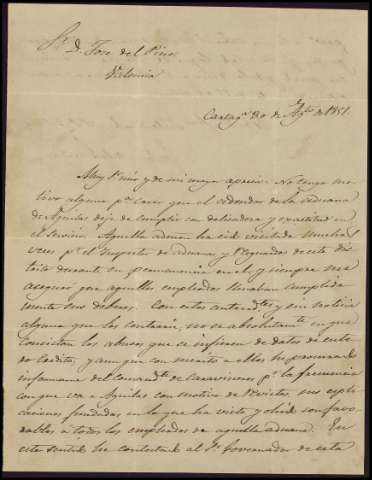 Sr. D. Jose del Pino
Valencia
Cartag.ª 30 de Ag.to de 1851.
Muy Sr. mio y de mi mayor aprecio: No tengo mo-
tivo alguno p.ª creer que el vedor de la Aduana
de Aguilas deje de cumplir con delicadeza y exactitud en
el servicio. Aquella aduana ha sido visitada muchas
veces p.r el inspector de aduanas y resguardos de este dis-
trito durante su permanencia en el, y siempre me
aseguró que aquellos empleados llenaban cumplida-
mente sus deberes. Con estos anteced.tes y sin noticia
alguna que los contraríe, no se absolutam.te en que
consistan los abusos que se infieren de datos de ente-
ro credito, y aunque con merito a ellos he procurado
informarme del comand.te de Carabineros p.r la frecuencia
con que va a Aguilas con motivo de Revistas, sus espli-
caciones fundadas en lo que ha visto y oido son favo-
rables a todos los empleados de aquella aduana. En
este sentido he contestado al Sr. Governador de esta